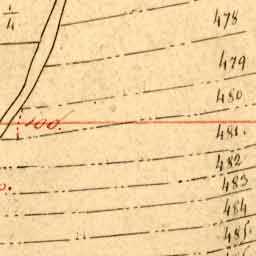 1/4
478
479
480
100.
481.
482
483
484
485.